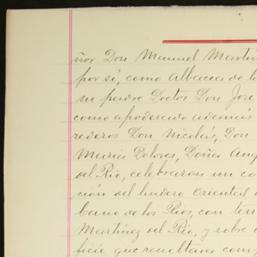 ñor Don Manuel Martín
por sí, como Albacea de l
su padre Doctor Don José
como apoderado además
rederos Don Nicolás, Don
María Dolores, Doña Ang
del Río, celebraron un co
ción del lindero Oriental d
bano de los Ríos, con ter
Martínez del Río, y sobre
ficie que resultara com